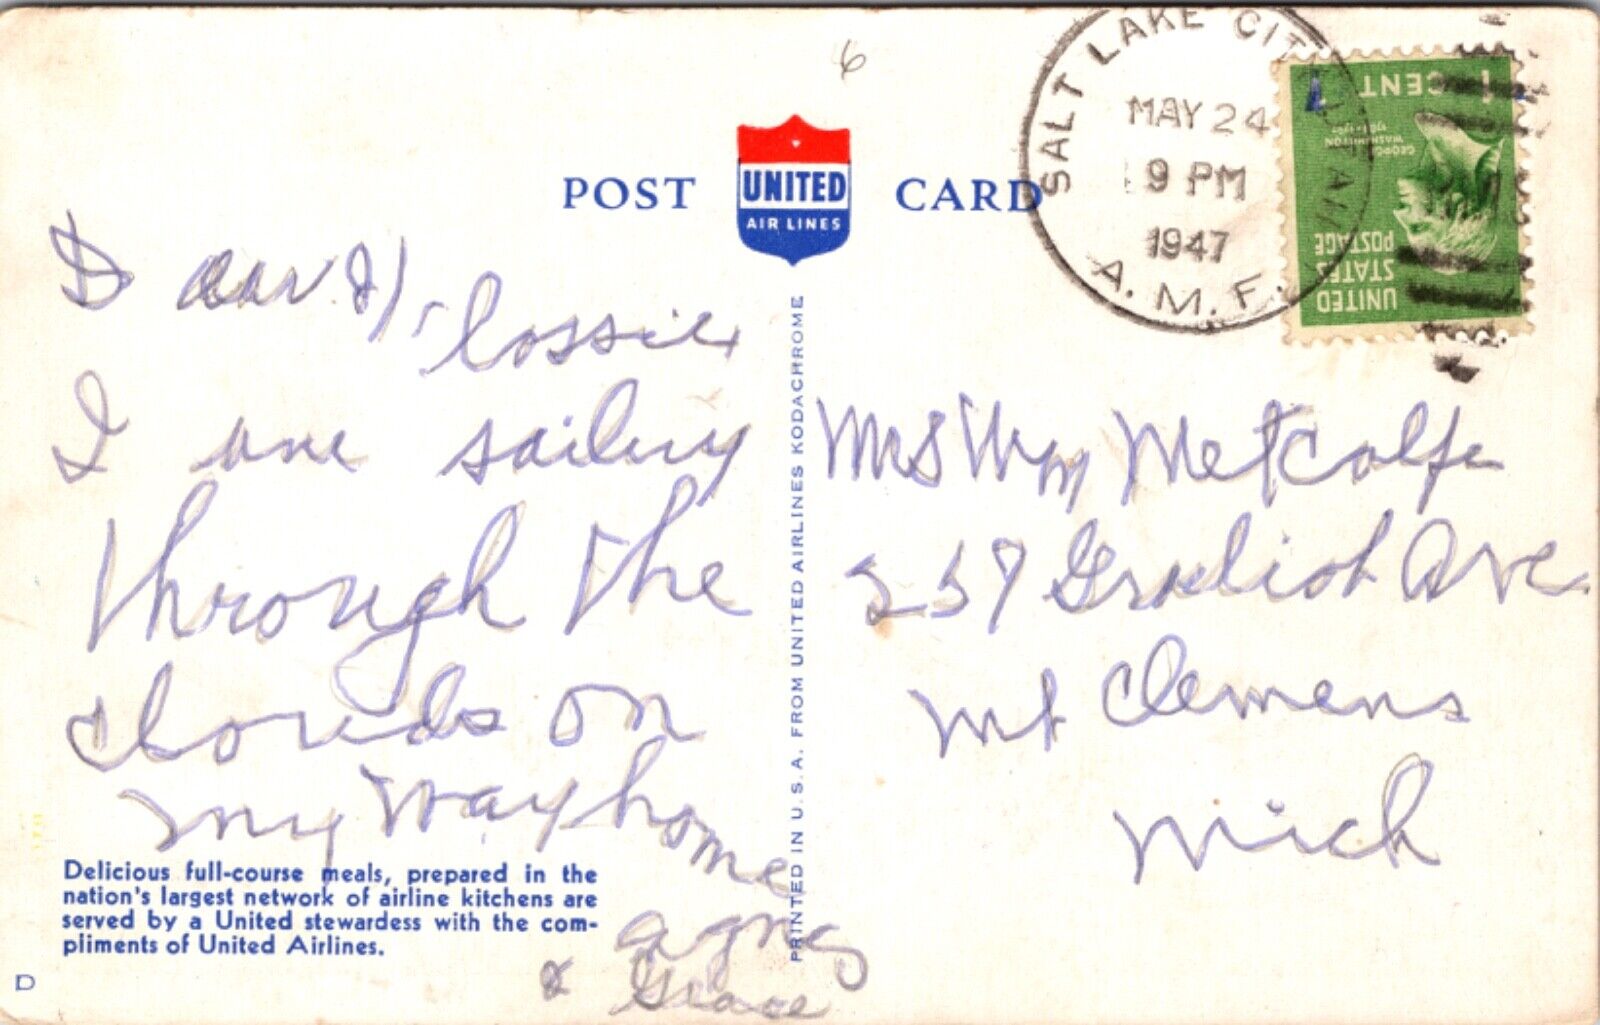 6
POST UNITED AIR LINES CARD
SALT LAKE CITY, UTAH
MAY 24
9 PM
1947
A.M.F.
1 CENT
GEORGE WASHINGTON
UNITED STATES POSTAGE
Dear Flossie
I am sailing
through the
clouds on
my way home
Agnes
& Grace
Mrs Wm Metcalfe
257 Gratiot Ave
Mt Clemens
Mich
PRINTED IN U.S.A. FROM UNITED AIRLINES KODACHROME
Delicious full-course meals, prepared in the
nation's largest network of airline kitchens are
served by a United stewardess with the com-
pliments of United Airlines.
D